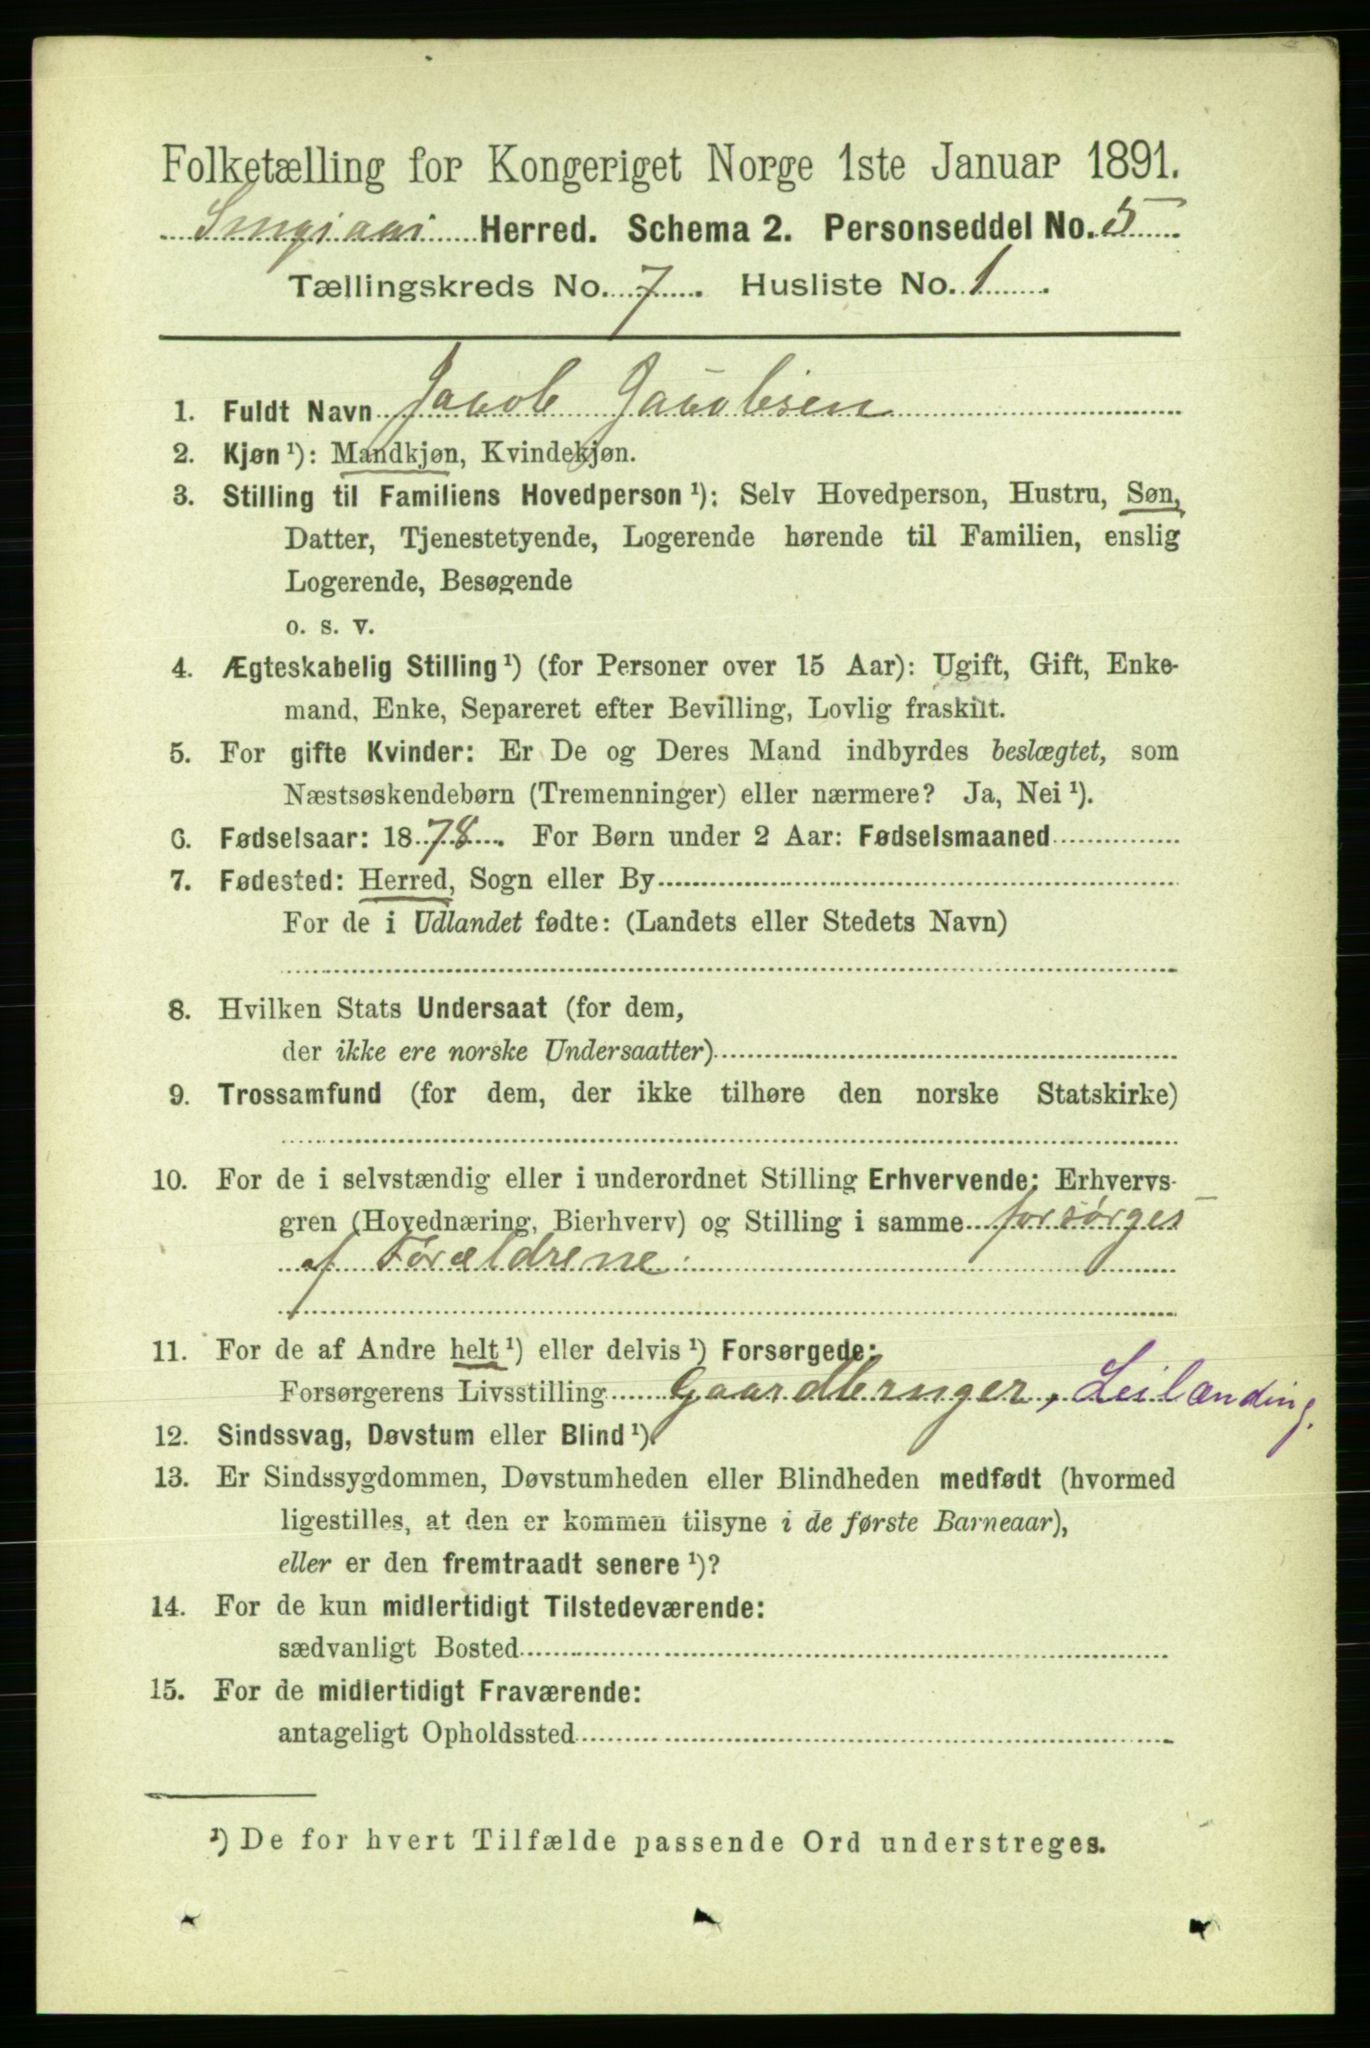 Folketælling for Kongeriget Norge 1ste Januar 1891.
Herred. Schema 2. Personseddel No. 5
Tællingskreds No. 7. Husliste No. 1
1. Fuldt Navn Jacob Jacobsen
2. Kjøn ¹): Mandkjøn, Kvindekjøn.
3. Stilling til Familiens Hovedperson ¹): Selv Hovedperson, Hustru, Søn,
Datter, Tjenestetyende, Logerende hørende til Familien, enslig
Logerende, Besøgende
o. s. v.
4. Ægteskabelig Stilling ¹) (for Personer over 15 Aar): Ugift, Gift, Enke-
mand, Enke, Separeret efter Bevilling, Lovlig fraskilt.
5. For gifte Kvinder: Er De og Deres Mand indbyrdes beslægtet, som
Næstsøskendebørn (Tremenninger) eller nærmere? Ja, Nei ¹).
6. Fødselsaar: 1878. For Børn under 2 Aar: Fødselsmaaned
7. Fødested: Herred, Sogn eller By
For de i Udlandet fødte: (Landets eller Stedets Navn)
8. Hvilken Stats Undersaat (for dem,
der ikke ere norske Undersaatter)
9. Trossamfund (for dem, der ikke tilhøre den norske Statskirke)
10. For de i selvstændig eller i underordnet Stilling Erhvervende: Erhvervs-
gren (Hovednæring, Bierhverv) og Stilling i samme forsørges
af Forældrene.
11. For de af Andre helt ¹) eller delvis ¹) Forsørgede:
Forsørgerens Livsstilling Gaardbruger, Leilænding.
12. Sindssvag, Døvstum eller Blind ¹).
13. Er Sindssygdommen, Døvstumheden eller Blindheden medfødt (hvormed
ligestilles, at den er kommen tilsyne i de første Barneaar),
eller er den fremtraadt senere ¹)?
14. For de kun midlertidigt Tilstedeværende:
sædvanligt Bosted
15. For de midlertidigt Fraværende:
antageligt Opholdssted
¹) De for hvert Tilfælde passende Ord understreges.